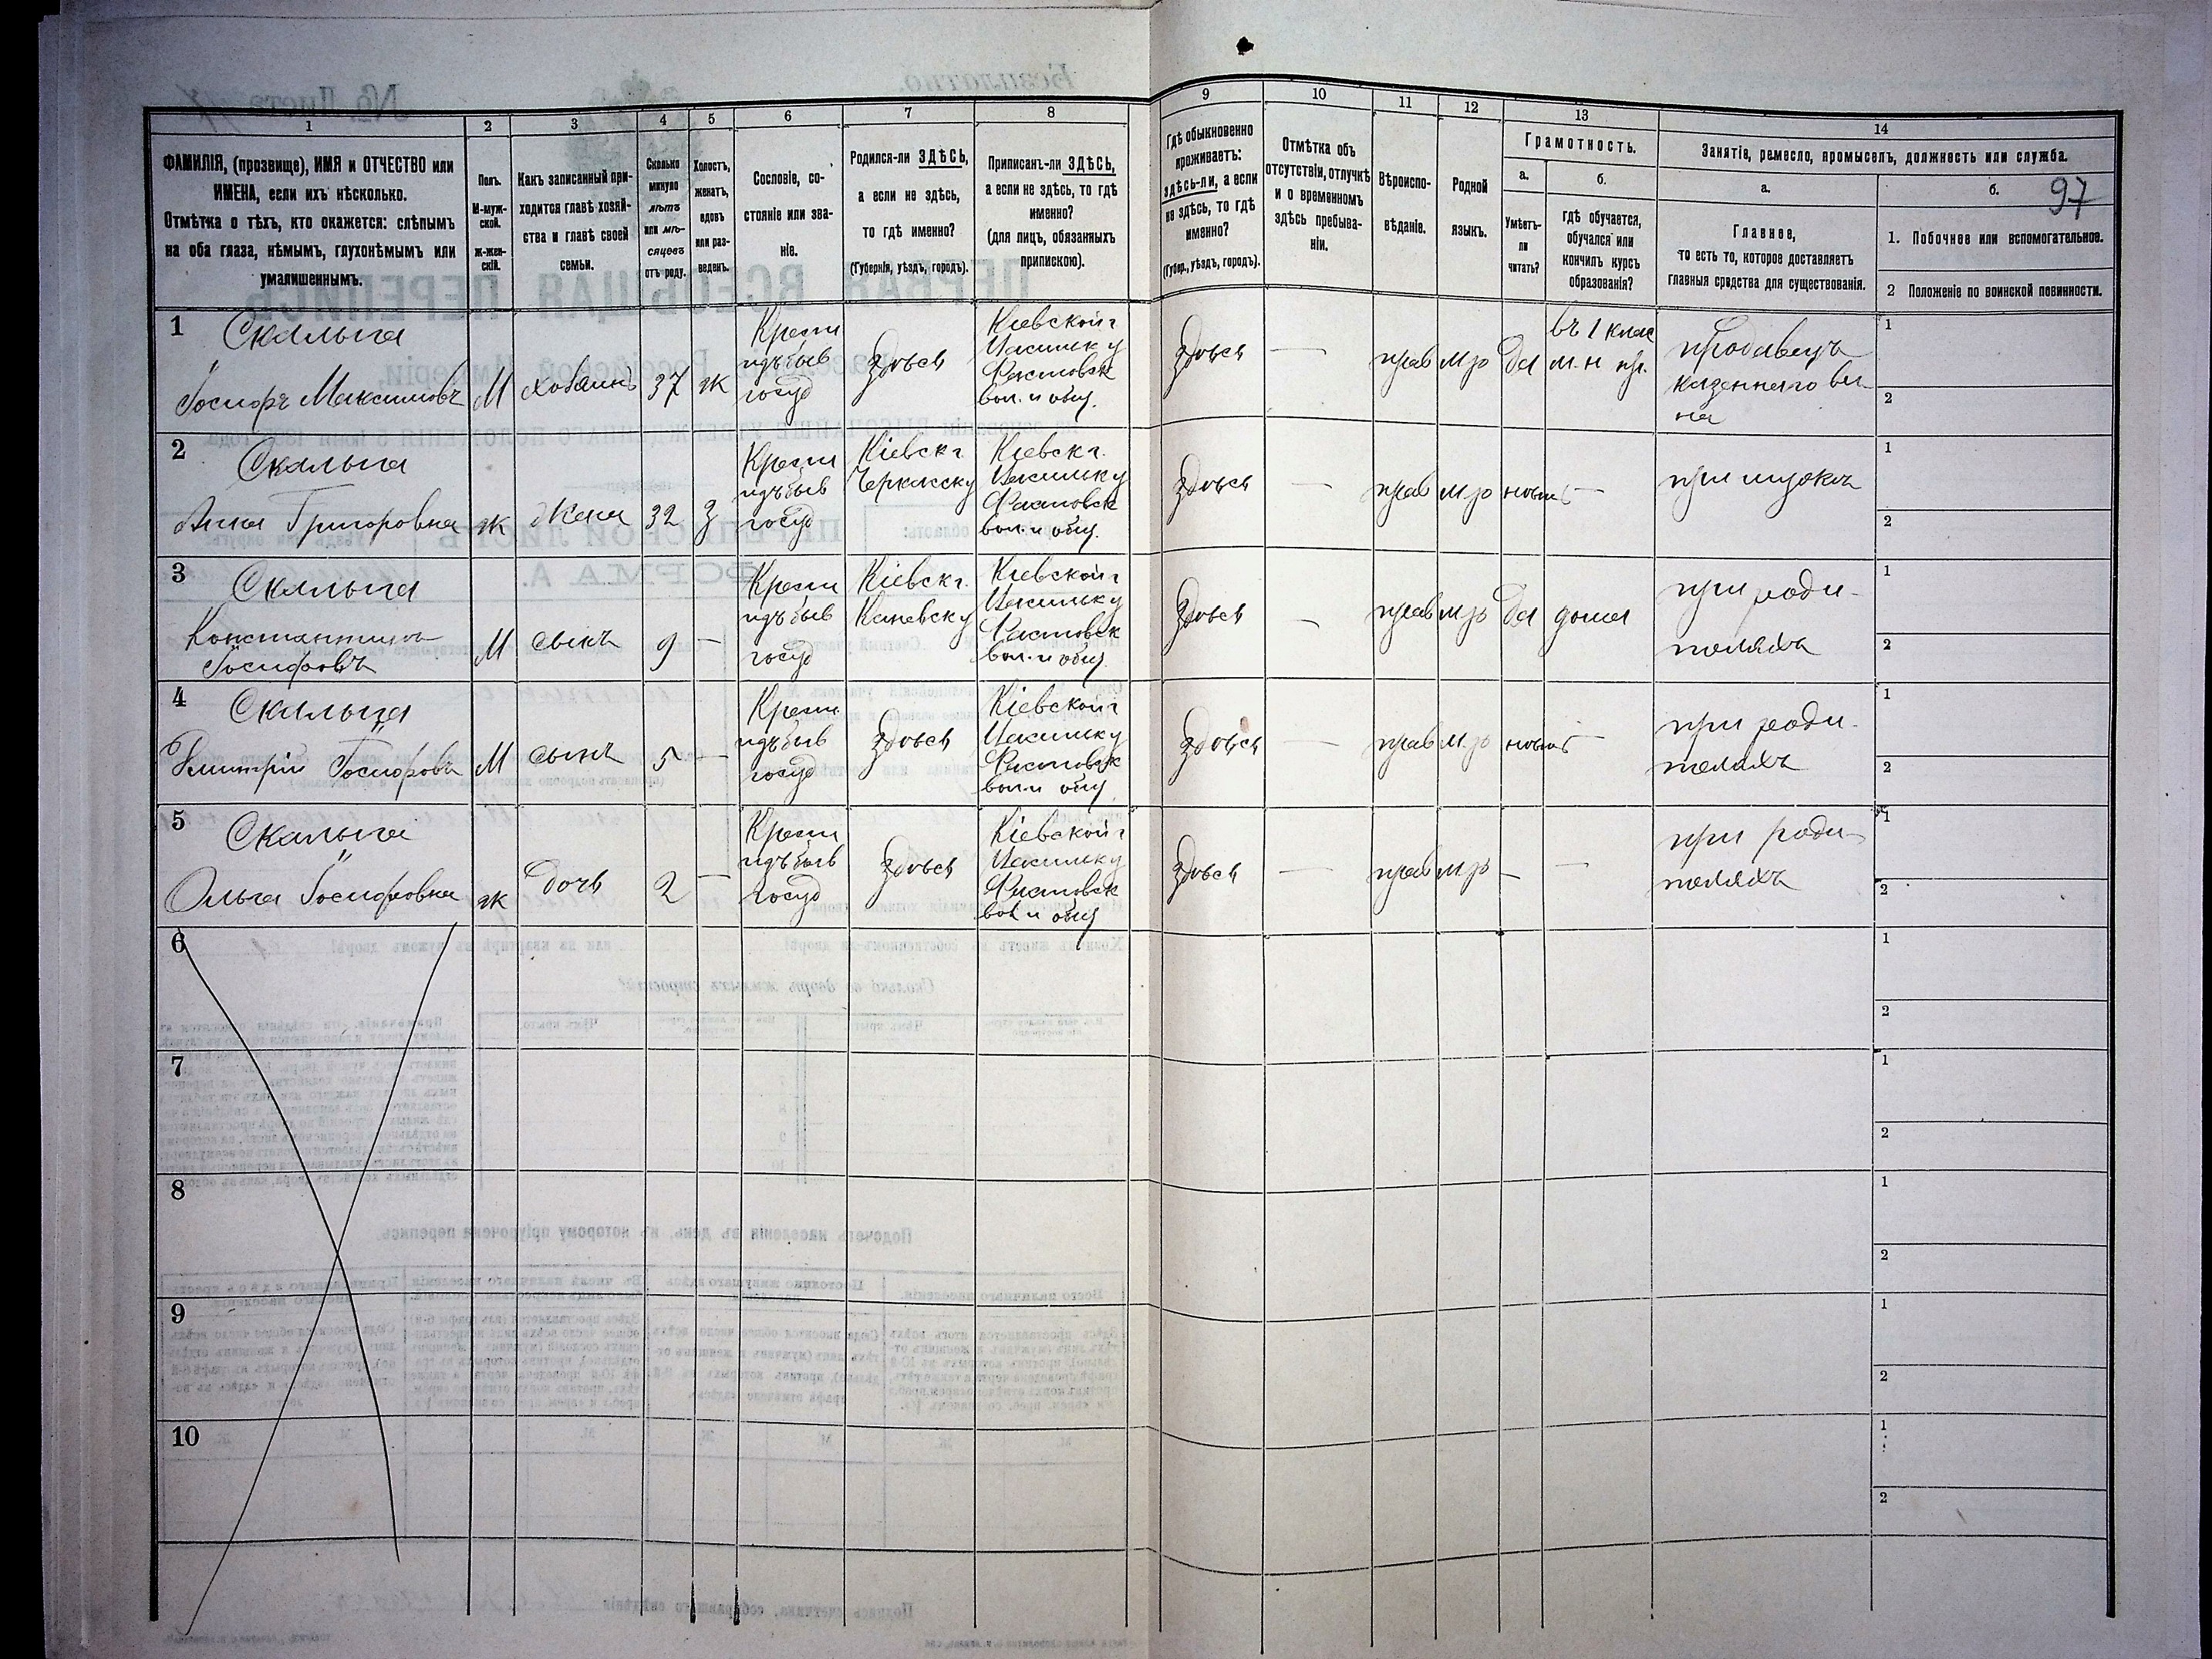 97
1 2 3 4 5 6 7 8 9 10 11 12 13 14
ФАМИЛІЯ, (прозвище), ИМЯ и ОТЧЕСТВО или
ИМЕНА, если ихъ нѣсколько.
Отмѣтка о тѣхъ, кто окажется: слѣпымъ
на оба глаза, нѣмымъ, глухонѣмымъ или
умалишеннымъ.
Полъ.
М-муж-
ской.
ж-жен-
скій.
Какъ записанный при-
ходится главѣ хозяй-
ства и главѣ своей
семьи.
Сколько
минуло
лѣтъ
или мѣ-
сяцевъ
отъ роду.
Холостъ,
женатъ,
вдовъ
или раз-
веденъ.
Сословіе, со-
стояніе или зва-
ніе.
Родился-ли ЗДѢСЬ,
а если не здѣсь,
то гдѣ именно?
(Губернія, уѣздъ, городъ).
Приписанъ-ли ЗДѢСЬ,
а если не здѣсь, то гдѣ
именно?
(для лицъ, обязанныхъ
припискою).
Гдѣ обыкновенно
проживаетъ:
здѣсь-ли, а если
не здѣсь, то гдѣ
именно?
(Губер., уѣздъ, городъ).
Отмѣтка объ
отсутствіи, отлучкѣ
и о временномъ
здѣсь пребыва-
ніи.
Вѣроиспо-
вѣданіе.
Родной
языкъ.
Грамотность.
а.
Умѣетъ-
ли
читать?
б.
гдѣ обучается,
обучался или
кончилъ курсъ
образованія?
Занятіе, ремесло, промыселъ, должность или служба.
а.
Главное,
то есть то, которое доставляетъ
главныя средства для существованія.
б.
1. Побочное или вспомогательное.
2 Положеніе по воинской повинности.
1 Скалыга
Іосифъ Максимовъ М хозяинъ 37 ж
Крест
изъ быв
госуд
здѣсь
Кіевской г
вол. и общ.
здѣсь — прав м р да
въ 1 клас
м. н
продавецъ
казеннаго ви-
на
1
2
2 Скалыга
Анна Григоровна ж жена 32 з
Крест
изъ быв
госуд
Кіевск г.
Черкасск у
Кіевск г.
вол. и общ.
здѣсь — прав м р нѣтъ —
при мужѣ
1
2
3 Скалыга
Константинъ
Іосифовъ
М сынъ 9 —
Крест
изъ быв
госуд
Кіевск г.
Каневск у
Кіевской г
вол. и общ.
здѣсь — прав м р да дома
при роди-
теляхъ
1
2
4 Скалыга
Дмитрій Іосифовъ М сынъ 5 —
Крест
изъ быв
госуд
здѣсь
Кіевской г
вол. и общ.
здѣсь — прав м. р нѣтъ —
при роди-
теляхъ
1
2
5 Скалыга
Ольга Іосифовна ж дочь 2 —
Крест
изъ быв
госуд
здѣсь
Кіевской г
вол и общ
здѣсь — прав м р — —
при роди-
теляхъ
1
2
6
1
2
7
1
2
8
1
2
9
1
2
10
1
2